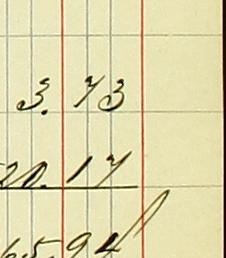 3. 73
20. 17
65.94